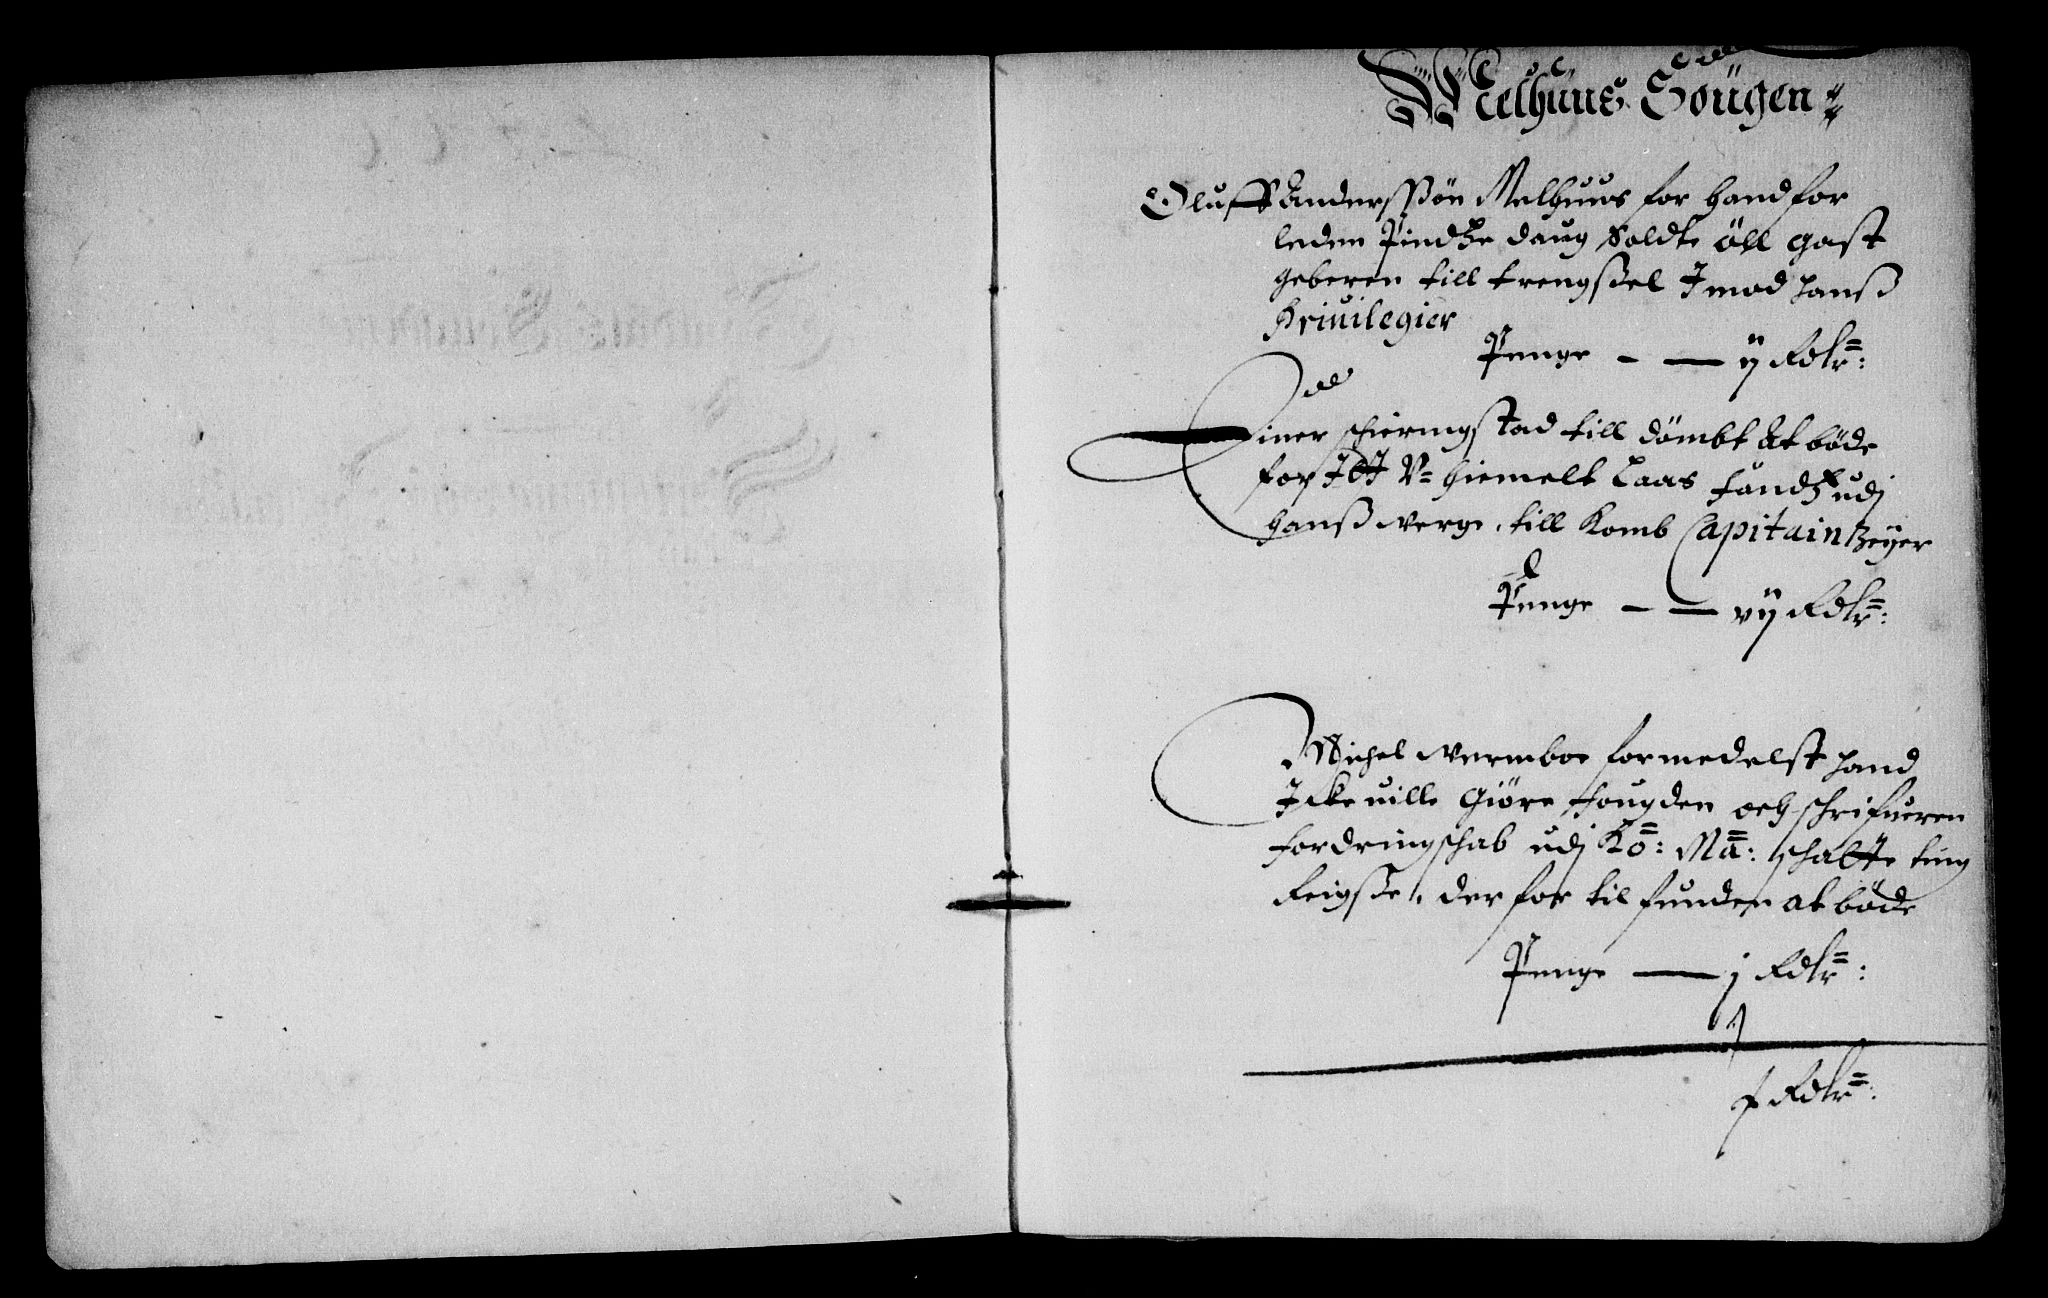 Melhuus Sougen
Oluff Anderssøn Melhuus for hand for
leden Pindtze daug Soldte öll gast
geberen till trengssel Jmod hanß
Priuilegier
Penge - — ij Rdlr:
Einer schieringstad till dömbt atböde
for Jtt V= hiemelt Laas fandtz udj
hanß verge, till Komb Capitain Zeÿer
Penge - — vij Rdlr:
Michel vermboe formedelst hand
Jcke uille Giöre fougden och schrifueren
fordringschab udj Ko: Ma: schatte ting
Reigsse, der for til funden at böde
Penge — j Rdlr:
x Rdlr: